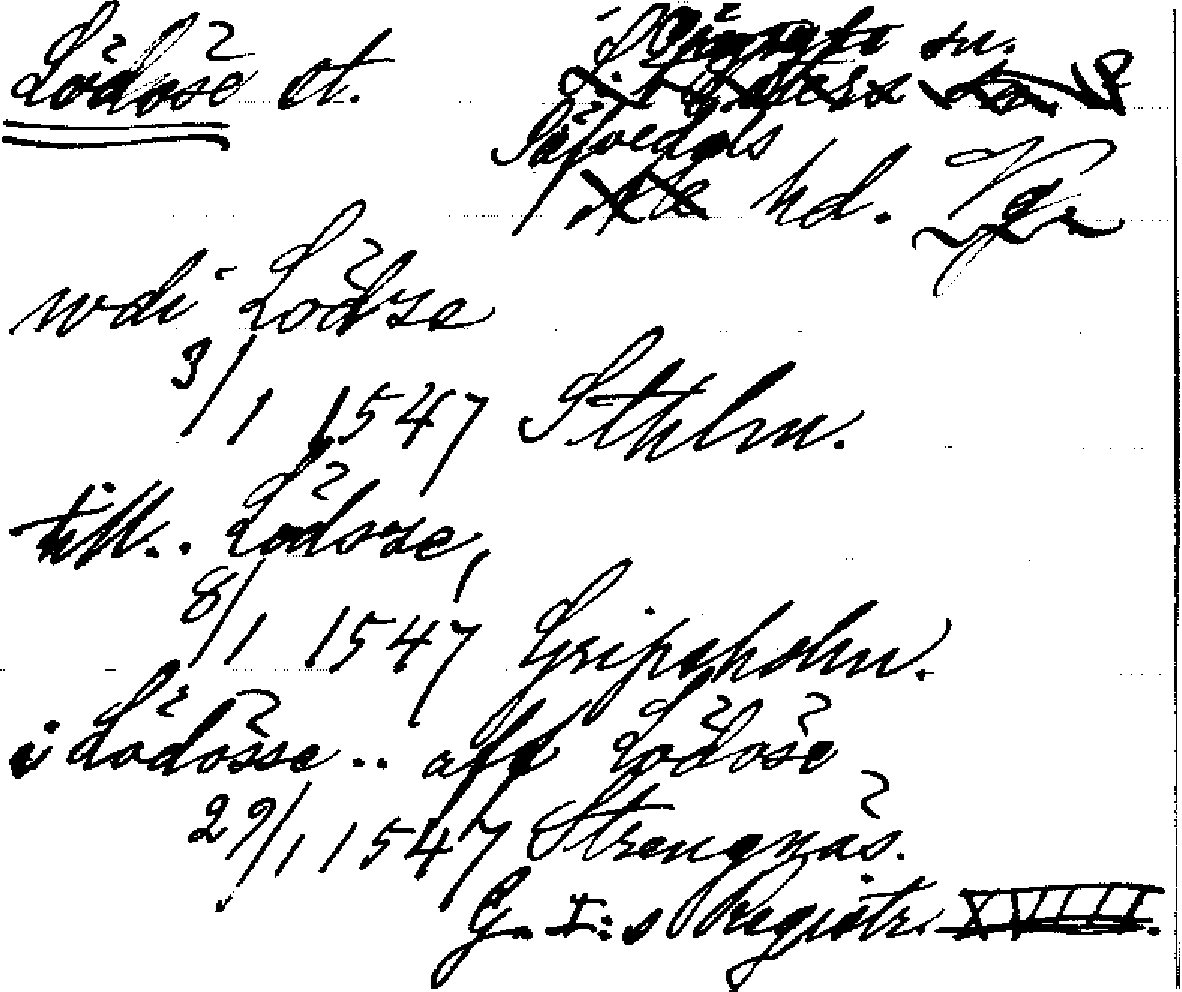 Lödöse st.
sn.
Sävedals
hd. Vg.
wdi Lödze
3/1 1547 Sthlm.
till.. Lödoze,
8/1 1547 Gripsholm.
i Lödösse.. aff Lödöse
29/1 1547 Strengnäs.
G. I:s Registr. XVIII.